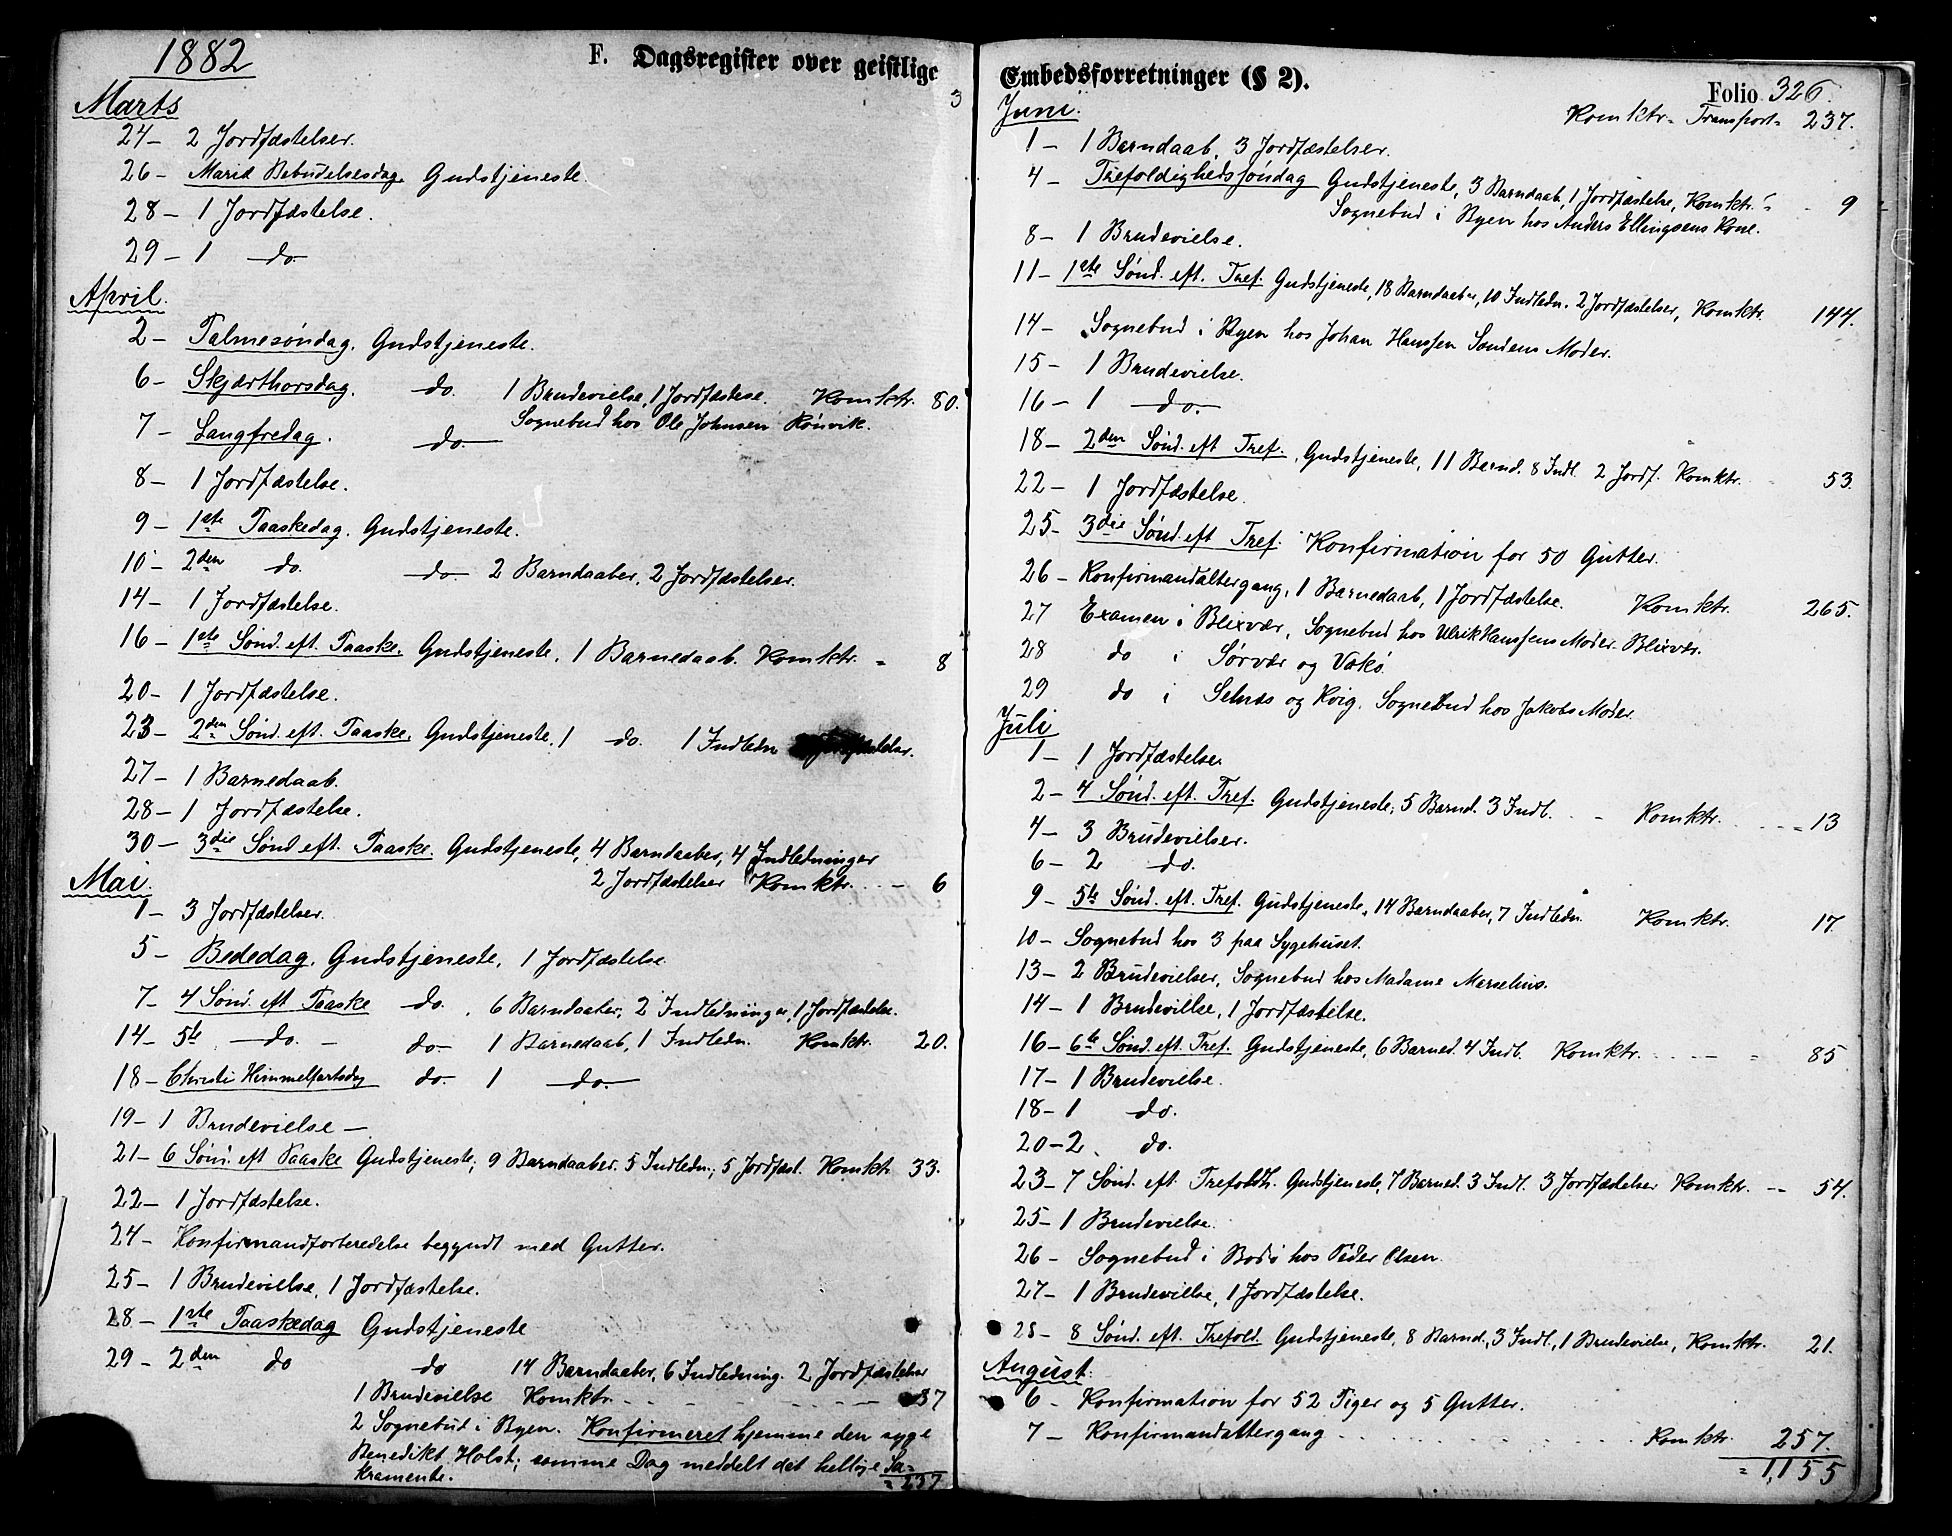 1882
F. Dagsregister over geistlige
3
Marts
24 – 2 Jordfæstelser.
26 – Mariæ Bebudelsesdag. Gudstjeneste.
28 – 1 Jordfæstelse.
29 – 1 do
April.
2 – Palmesøndag. Gudstjeneste.
6 – Skjærthorsdag. do. 1 Brudevielse, 1 Jordfæstelse. Komktr. 80.
7 – Langfredag. do Sognebud hos Ole Johnsen Rønvik.
8 – 1 Jordfæstelse.
9 – 1ste Paaskedag. Gudstjeneste.
10 – 2den do. do 2 Barndaaber, 2 Jordfæstelser.
14 – 1 Jordfæstelse.
16 – 1ste Sønd. eft. Paaske. Gudstjeneste, 1 Barnedaab. Komktr. = 8
20 – 1 Jordfæstelse.
23 – 2den Sønd. eft. Paaske. Gudstjeneste, 1 do. 1 Indledn
27 – 1 Barnedaab.
28 – 1 Jordfæstelse.
30 – 3die Sønd eft. Paaske. Gudstjeneste, 4 Barndaaber, 4 Indledninger
2 Jordfæstelser Komktr. . . – 6
Mai.
1 – 3 Jordfæstelser.
5 – Bededag. Gudstjeneste, 1 Jordfæstelse
7 – 4 Sønd. eft Paaske do. 6 Barndaaber, 2 Indledninger, 1 Jordfæstelse.
14 – 5te do. – do. 1 Barnedaab, 1 Indledn. Komktr. 20.
18 – Christi Himmelfartsdg do. 1 do.
19 – 1 Brudevielse –
21 – 6 Sønd. eft Paaske Gudstjeneste, 9 Barndaaber. 5 Indledn., 5 Jordfæst. Komktr. 33.
22 – 1 Jordfæstelse.
24 – Konfirmandforberedelse begyndt med Gutter.
25 – 1 Brudevielse, 1 Jordfæstelse.
28 – 1ste Paaskedag Gudstjeneste
29 – 2den do do 14 Barndaaber, 6 Indledning. 2 Jordfæstelser
1 Brudevielse Komktr. – – – – 37
2 Sognebud i Byen. Konfirmeret hjemme den syge
Benedikt Holst; samme Dag meddelt det hellige Sa=
kramente. = 237
Embedsforretninger (§ 2).
Folio 326.
Juni. Komktr. Transport = 237.
1 – 1 Barndaab, 3 Jordfæstelser.
4 – Trefoldighedssøndag Gudstjeneste, 3 Barndaab, 1 Jordfæstelse, Komktr. 9
Sognebud i Byen hos Anders Ellingsens Kone.
8 – 1 Brudevielse.
11 – 1ste Sønd. eft. Tref. Gudstjeneste, 18 Barndaaber, 10 Indledn. 2 Jordfæstelser, Komktr. 144.
14 – Sognebud i Byen hos Johan Hanssen Sandens Moder.
15 – 1 Brudevielse.
16 – 1 do.
18 – 2den Sønd. eft Tref. Gudstjeneste, 11 Barnd. 8 Indl. 2 Jordf. Komktr. 53.
22 – 1 Jordfæstelse.
25 – 3die Sønd. eft Tref. Konfirmation for 50 Gutter.
26 – Konfirmandaltergang, 1 Barnedaab, 1 Jordfæstelse. Komktr. 265.
27 Examen i Blixvær, Sognebud hos Ulrik Hanssens Moder Blixvær.
28 do i Sørvær og Vokø
29 do i Selnæs og Kvig. Sognebud hos Jakobs Moder
Juli
1 – 1 Jordfæstelse
2 – 4 Sønd. eft. Tref. Gudstjeneste, 5 Barnd. 3 Indl. Komktr. 13
4 – 3 Brudevielser.
6 – 2 do.
9 – 5te Sønd. eft. Tref. Gudstjeneste, 14 Barndaaber, 7 Indledn. Komktr. 17.
10 – Sognebud hos 3 paa Sygehuset.
13 – 2 Brudevielser, Sognebud hos Madame Marselius.
14 – 1 Brudevielse, 1 Jordfæstelse.
16 – 6te Sønd. eft. Tref. Gudstjeneste, 6 Barned. 4 Indl. Komktr. 85
17 – 1 Brudevielse.
18 – 1 do.
20 – 2 do.
23 – 7 Sønd. eft. Trefoldh. Gudstjeneste, 7 Barned. 3 Indl. 3 Jordfæstelser Komktr. -- 54.
25 – 1 Brudevielse.
26 – Sognebud i Bodø hos Peder Olsen.
27 – 1 Brudevielse, 1 Jordfæstelse.
28 – 8 Sønd. eft. Trefold. Gudstjeneste, 8 Barnd., 3 Indl., 1 Brudevielse, Komktr. 21.
August.
6 – Konfirmation for 52 Piger og 5 Gutter.
7 – Konfirmandaltergang . . . . Komktr. 257.
= 1,155